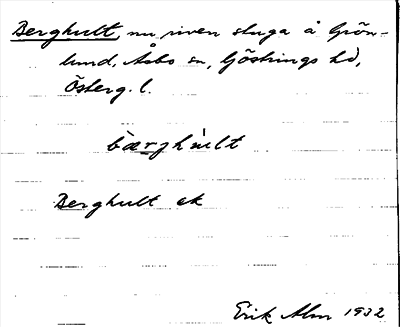 Berghult, nu riven stuga å Grön-
lund, Åsbo sn, Göstrings hd,
Österg. l.
bæ̀rghúlt
Berghult ek
Erik Alm 1932